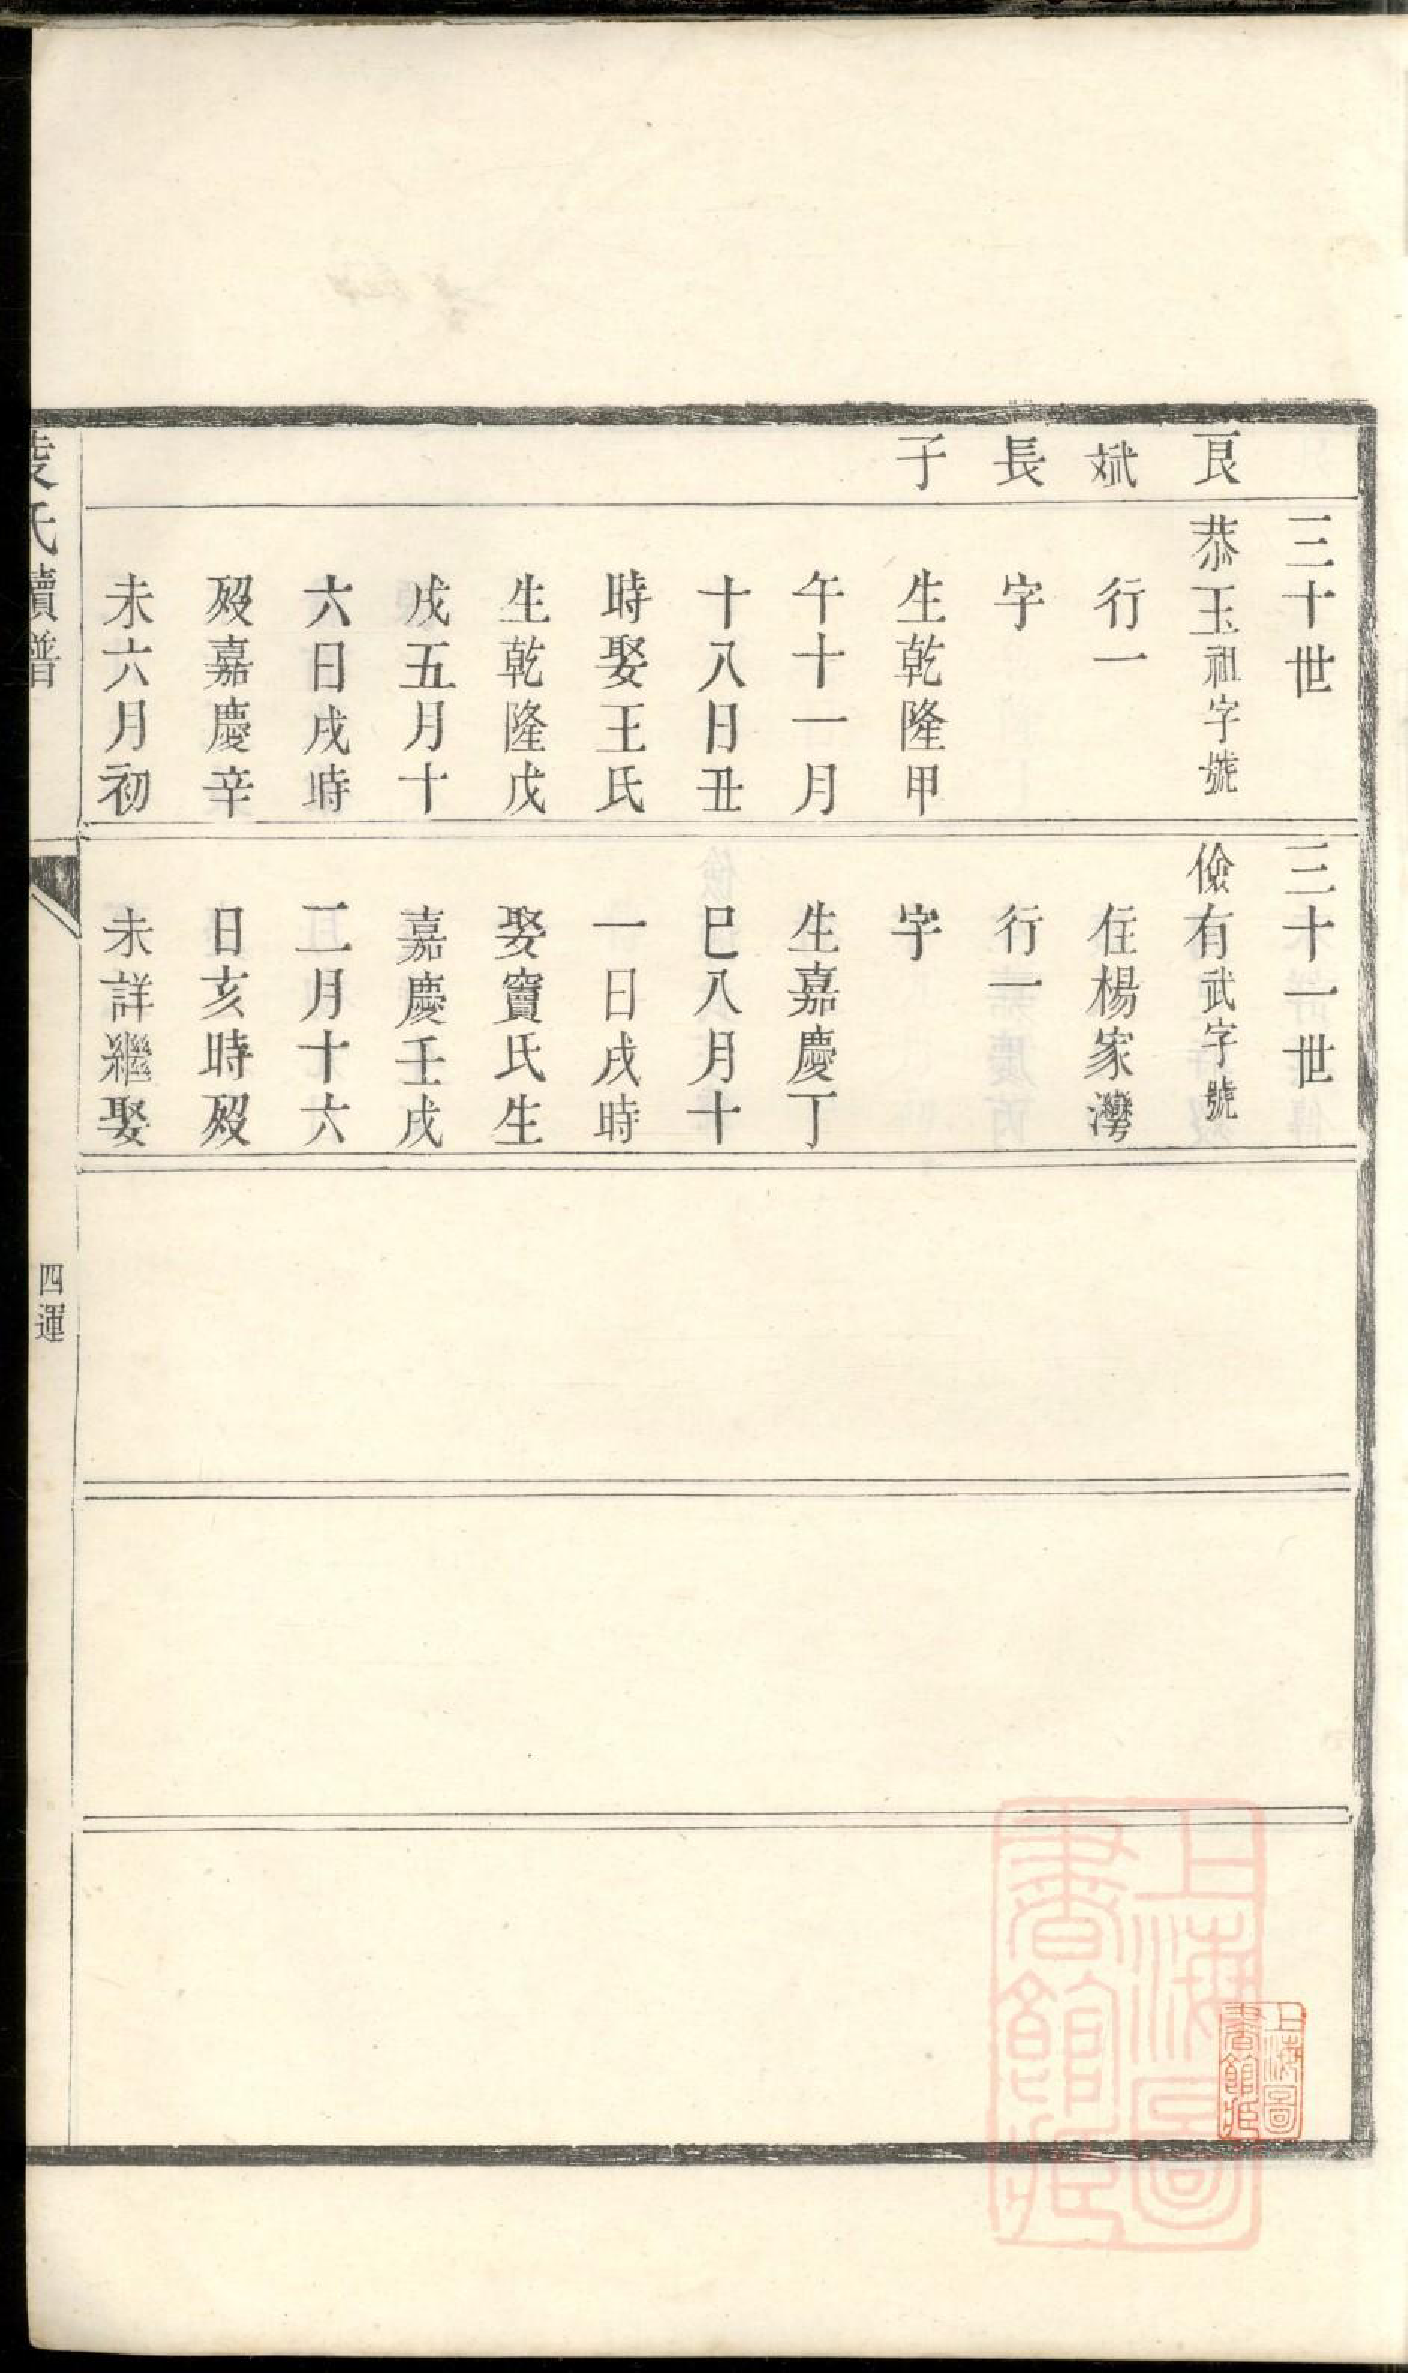 良斌長子
三十世
恭玉祖字號
行一
字
生乾隆甲
午十一月
十八日丑
時娶王氏
生乾隆戊
戌五月十
六日戌時
殁嘉慶辛
未六月初
三十一世
儉有武字號
住楊家灣
行一
字
生嘉慶丁
巳八月十
一日戌時
娶竇氏生
嘉慶壬戌
二月十六
日亥時殁
未詳繼娶
氏續譜
四運
上海圖書館藏
上海圖書館藏